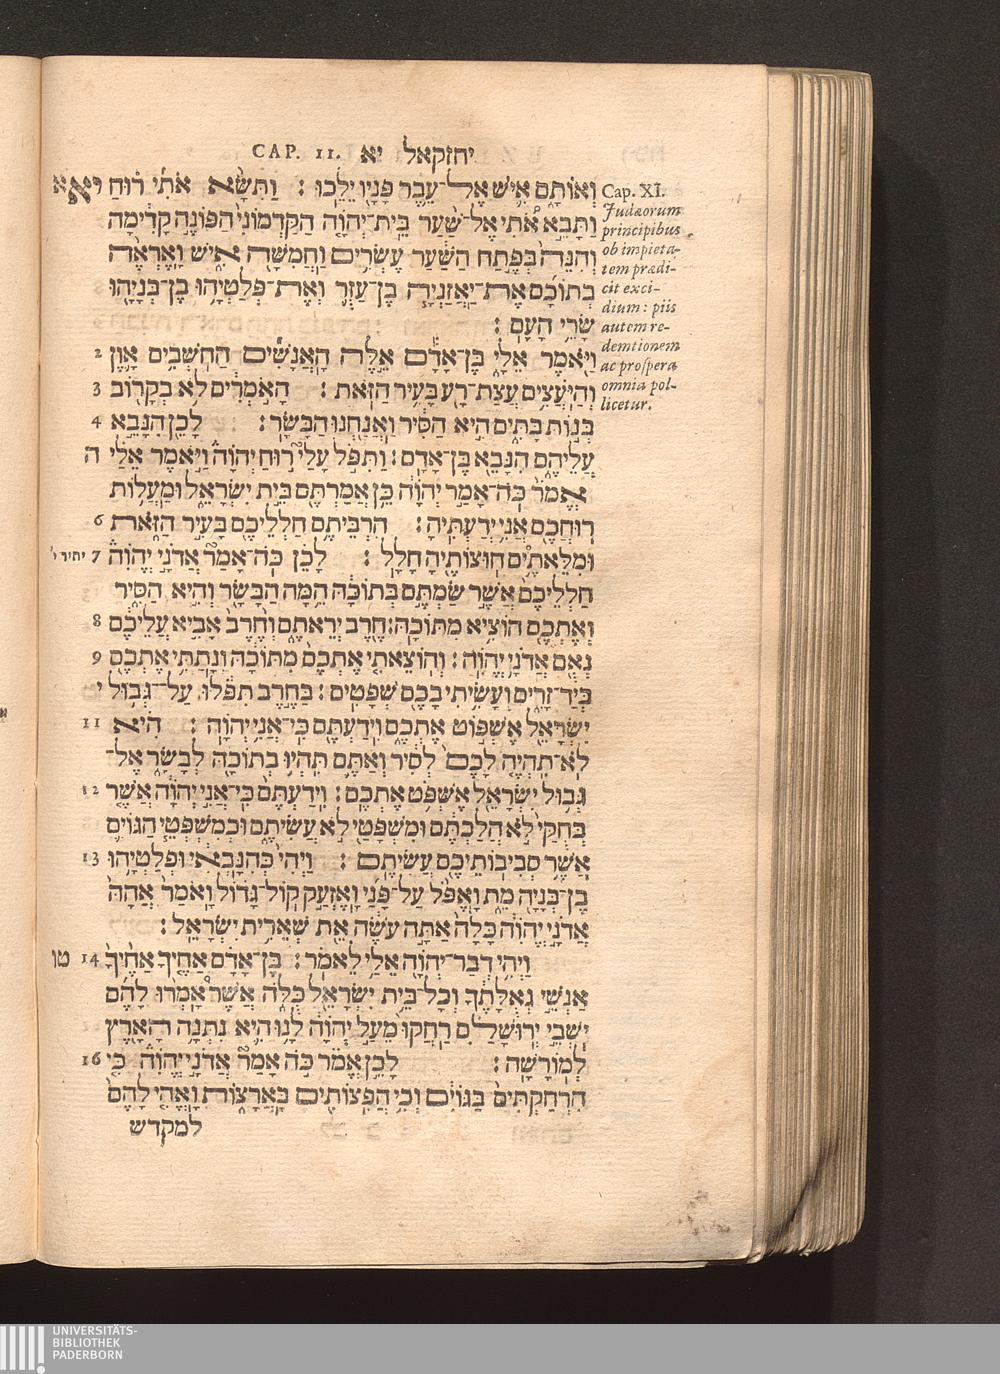 יחזקאל יא CAP. 11.
וְאוֹתָם אִישׁ אֶל־עֵבֶר פָּנָיו יֵלֵכוּ׃ וַתִּשָּׂא אֹתִי רוּחַ יא א
וַתָּבֵא אֹתִי אֶל־שַׁעַר בֵּית־יְהוָה הַקַּדְמוֹנִי הַפּוֹנֶה קָדִימָה
וְהִנֵּה בְּפֶתַח הַשַּׁעַר עֶשְׂרִים וַחֲמִשָּׁה אִישׁ וָאֶרְאֶה
בְתוֹכָם אֶת־יַאֲזַנְיָה בֶן־עַזֻּר וְאֶת־פְּלַטְיָהוּ בֶן־בְּנָיָהוּ
שָׂרֵי הָעָם׃
וַיֹּאמֶר אֵלָי בֶּן־אָדָם אֵלֶּה הָאֲנָשִׁים הַחֹשְׁבִים אָוֶן 2
וְהַיֹּעֲצִים עֲצַת־רָע בָּעִיר הַזֹּאת׃ הָאֹמְרִים לֹא בְקָרוֹב 3
בְּנוֹת בָּתִּים הִיא הַסִּיר וַאֲנַחְנוּ הַבָּשָׂר׃ לָכֵן הִנָּבֵא 4
עֲלֵיהֶם הִנָּבֵא בֶּן־אָדָם׃ וַתִּפֹּל עָלַי רוּחַ יְהוָה וַיֹּאמֶר אֵלַי ה
אֱמֹר כֹּה־אָמַר יְהוָה כֵּן אֲמַרְתֶּם בֵּית יִשְׂרָאֵל וּמַעֲלוֹת
רוּחֲכֶם אֲנִי יְדַעְתִּיהָ׃ הִרְבֵּיתֶם חַלְלֵיכֶם בָּעִיר הַזֹּאת 6
וּמִלֵּאתֶם חוּצוֹתֶיהָ חָלָל׃ לָכֵן כֹּה־אָמַר אֲדֹנָי יְהוִה 7 יתיר ו׳
חַלְלֵיכֶם אֲשֶׁר שַׂמְתֶּם בְּתוֹכָהּ הֵמָּה הַבָּשָׂר וְהִיא הַסִּיר
וְאֶתְכֶם הוֹצִיא מִתּוֹכָהּ׃ חֶרֶב יְרֵאתֶם וְחֶרֶב אָבִיא עֲלֵיכֶם 8
נְאֻם אֲדֹנָי יְהוִה׃ וְהוֹצֵאתִי אֶתְכֶם מִתּוֹכָהּ וְנָתַתִּי אֶתְכֶם 9
בְּיַד־זָרִים וְעָשִׂיתִי בָכֶם שְׁפָטִים׃ בַּחֶרֶב תִּפֹּלוּ עַל־גְּבוּל י
יִשְׂרָאֵל אֶשְׁפּוֹט אֶתְכֶם וִידַעְתֶּם כִּי־אֲנִי יְהוָה׃ הִיא 11
לֹא־תִהְיֶה לָכֶם לְסִיר וְאַתֶּם תִּהְיוּ בְתוֹכָהּ לְבָשָׂר אֶל־
גְּבוּל יִשְׂרָאֵל אֶשְׁפֹּט אֶתְכֶם׃ וִידַעְתֶּם כִּי־אֲנִי יְהוָה אֲשֶׁר 12
בְּחֻקַּי לֹא הֲלַכְתֶּם וּמִשְׁפָּטַי לֹא עֲשִׂיתֶם וּכְמִשְׁפְּטֵי הַגּוֹיִם
אֲשֶׁר סְבִיבוֹתֵיכֶם עֲשִׂיתֶם׃ וַיְהִי כְּהִנָּבְאִי וּפְלַטְיָהוּ 13
בֶן־בְּנָיָה מֵת וָאֶפֹּל עַל־פָּנַי וָאֶזְעַק קוֹל־גָּדוֹל וָאֹמַר אֲהָהּ
אֲדֹנָי יְהוִה כָּלָה אַתָּה עֹשֶׂה אֵת שְׁאֵרִית יִשְׂרָאֵל׃
וַיְהִי דְבַר־יְהוָה אֵלַי לֵאמֹר׃ בֶּן־אָדָם אַחֶיךָ אַחֶיךָ 14 טו
אַנְשֵׁי גְאֻלָּתֶךָ וְכָל־בֵּית יִשְׂרָאֵל כֻּלֹּה אֲשֶׁר אָמְרוּ לָהֶם
יֹשְׁבֵי יְרוּשָׁלִַם רַחֲקוּ מֵעַל יְהוָה לָנוּ הִיא נִתְּנָה הָאָרֶץ
לְמוֹרָשָׁה׃ לָכֵן אֱמֹר כֹּה אָמַר אֲדֹנָי יְהוִה כִּי 16
הִרְחַקְתִּים בַּגּוֹיִם וְכִי הֲפִצוֹתִים בָּאֲרָצוֹת וָאֱהִי לָהֶם
למקדש
Cap. XI.
Judæorum
principibus
ob impieta-
tem prædi-
cit exci-
dium: piis
autem re-
demtionem
ac prospera
omnia pol-
licetur.
UNIVERSITÄTS-
BIBLIOTHEK
PADERBORN